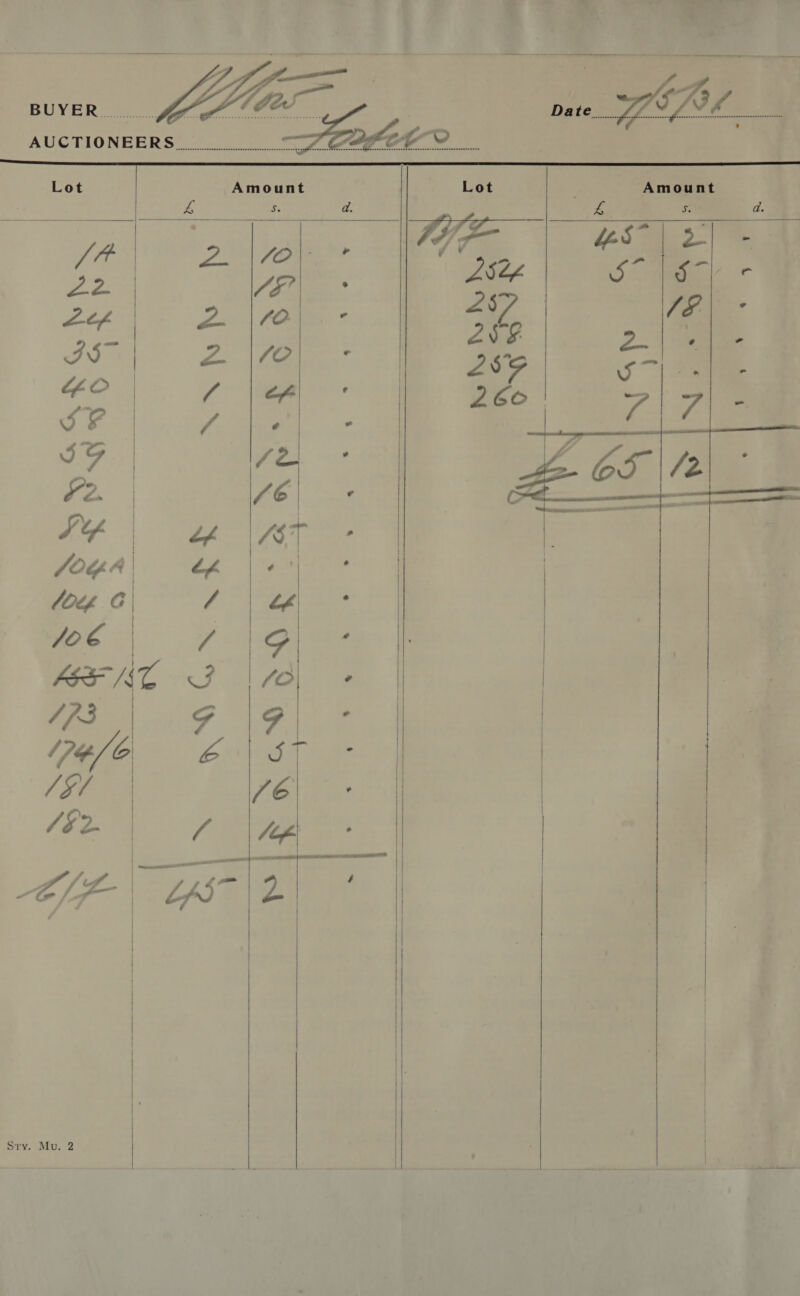 BUYER
Date
AUCTIONEERS
Lot Amount Lot Amount
£ s. d. £ s. d.
1A 2 10 -
22 18 -
24 2 10 -
35 2 10 -
40 1 4 -
58 1 - -
59 12 -
82 16 -
84 4 15 -
104A 4 - -
104 G 1 4 -
106 1 9 -
3 10 -
173 9 9 -
174/6 6 5 -
181 16 -
182 1 14 -
C/F £45 2 -
B/F 45 2 -
5 5 -
257 18 -
258 2 - -
259 5 - -
260 7 7 -
£ 65 12 -
Sty. Mu. 2